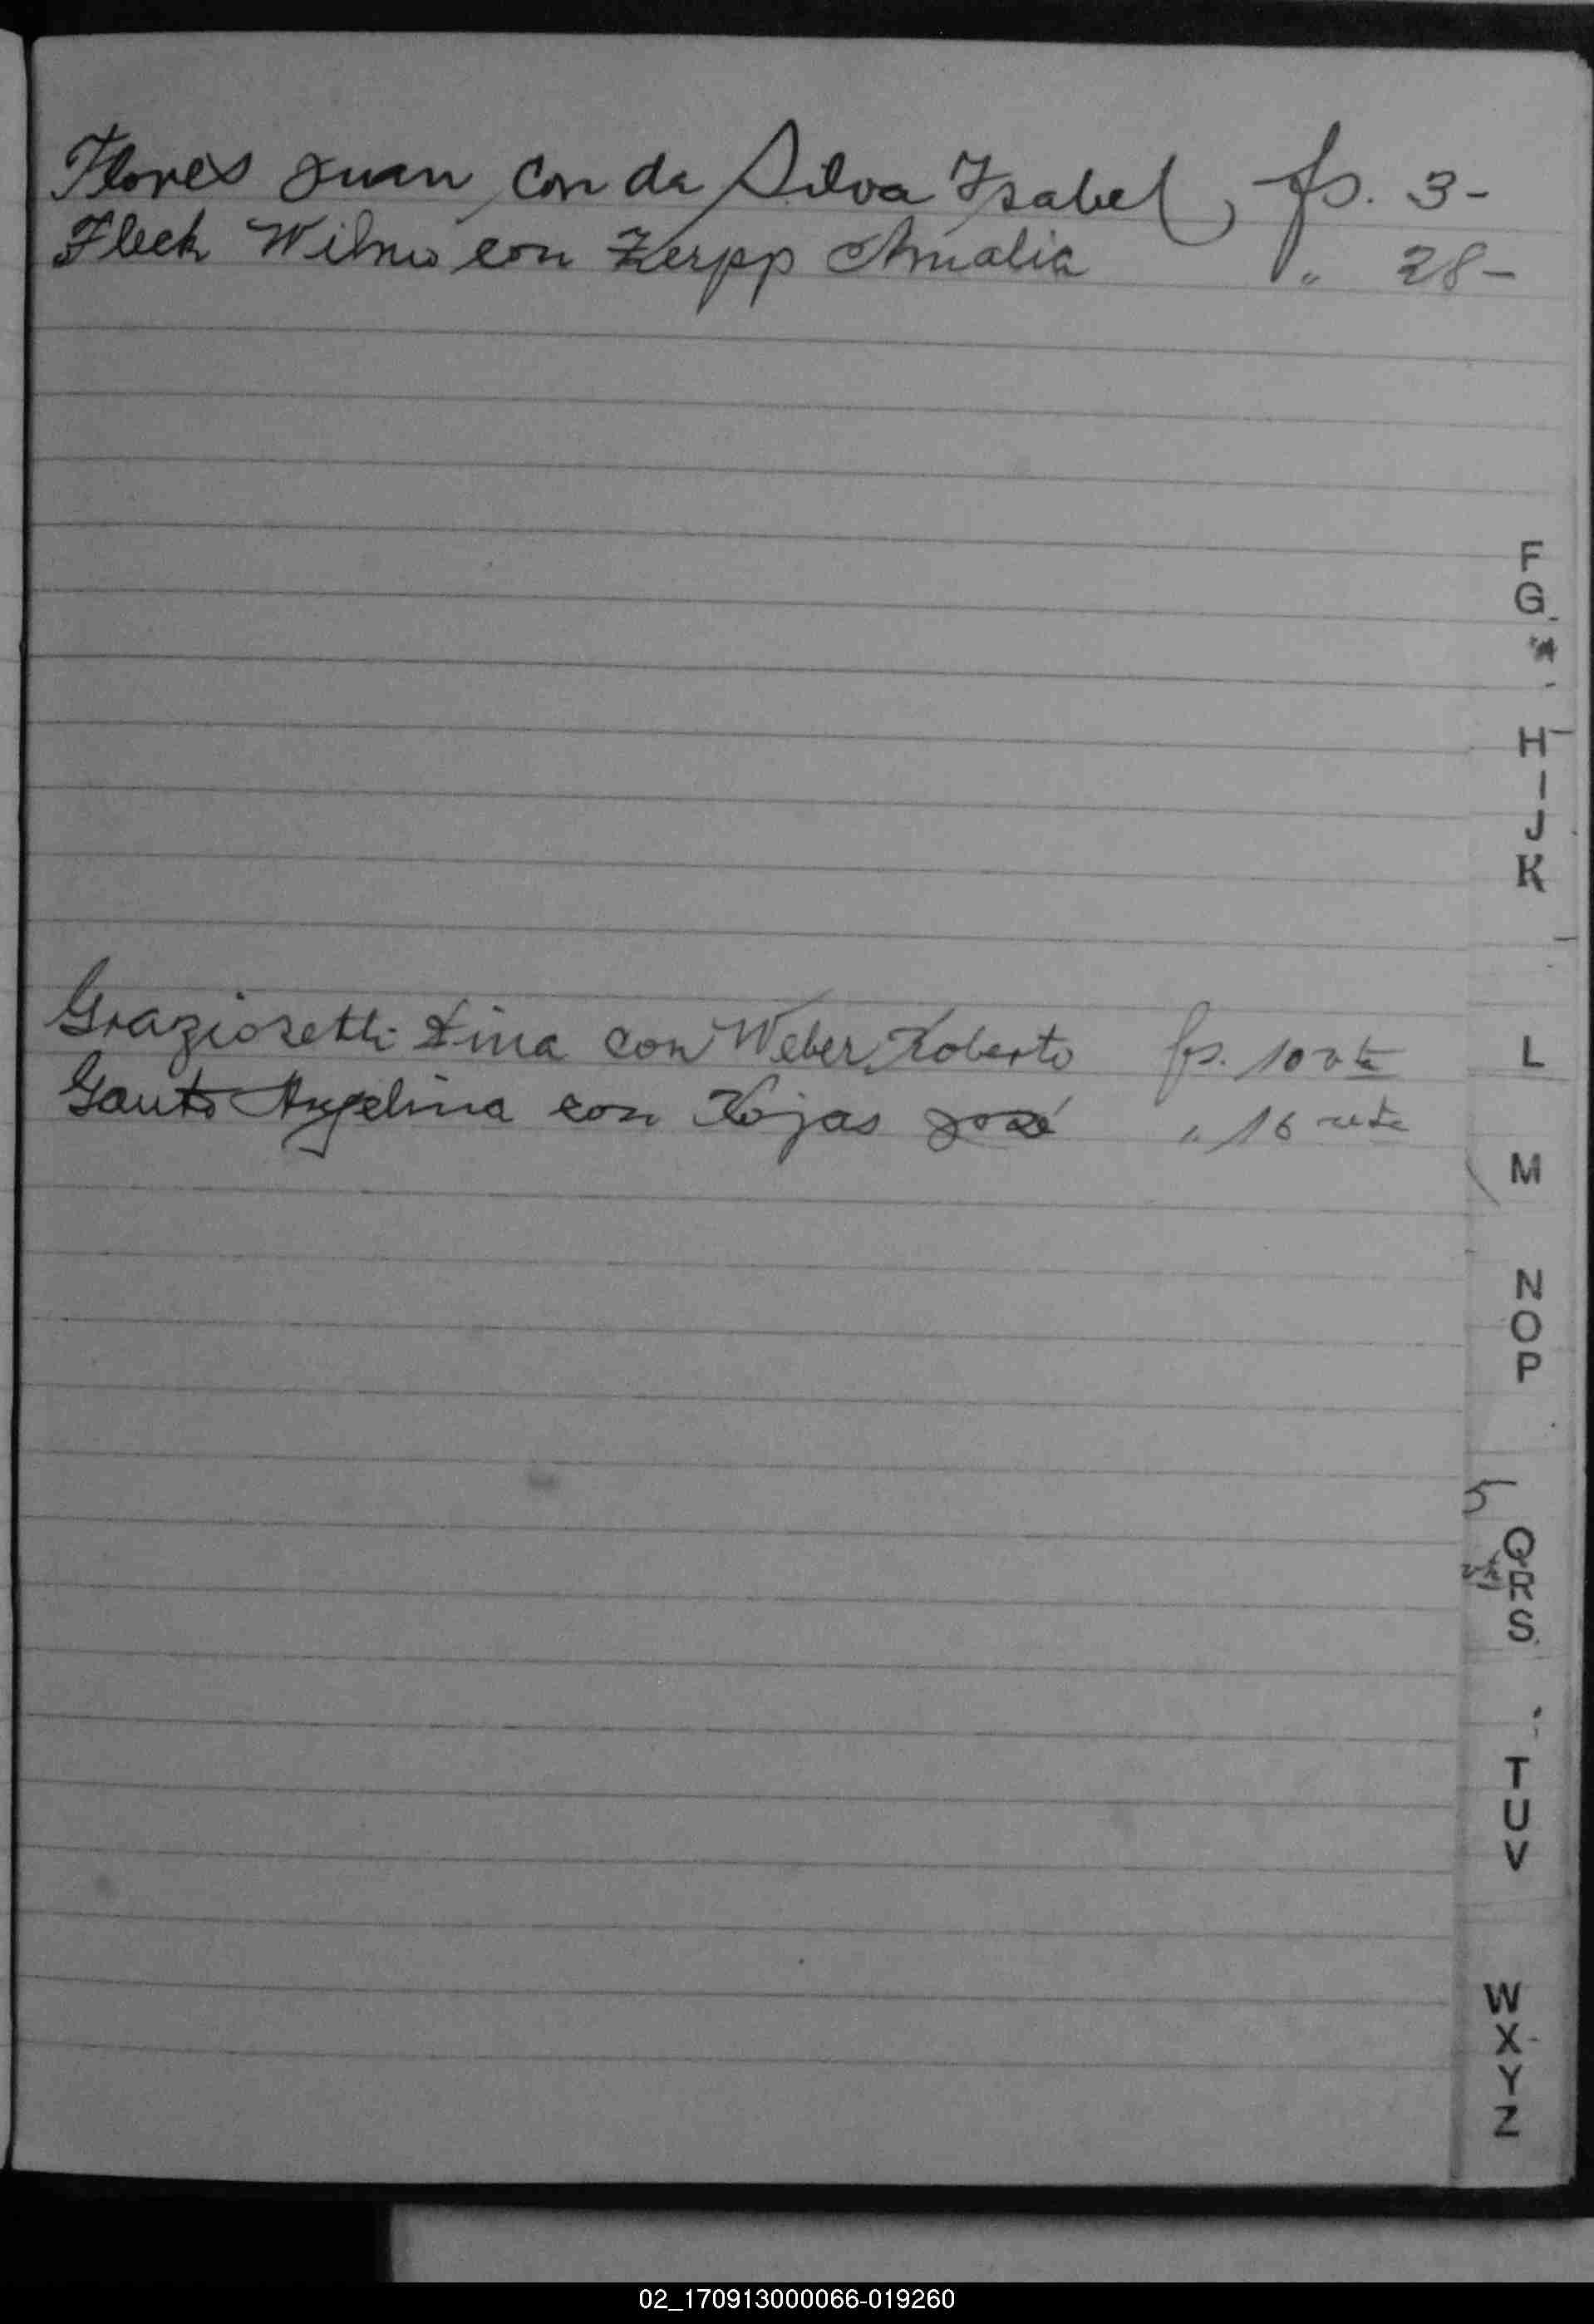 Flores Juan con da Silva Isabel, fs. 3-
Fleck Wilmo con Zerpp Amalia " 28-
F
G
H
I
J
K
Graziosetti Dina con Weber Roberto fs. 10 vta
Gauto Angelina con Rojas José " 16 vta
L
M
N
O
P
5
Q
R
S
T
U
V
W
X
Y
Z
02_170913000066-019260